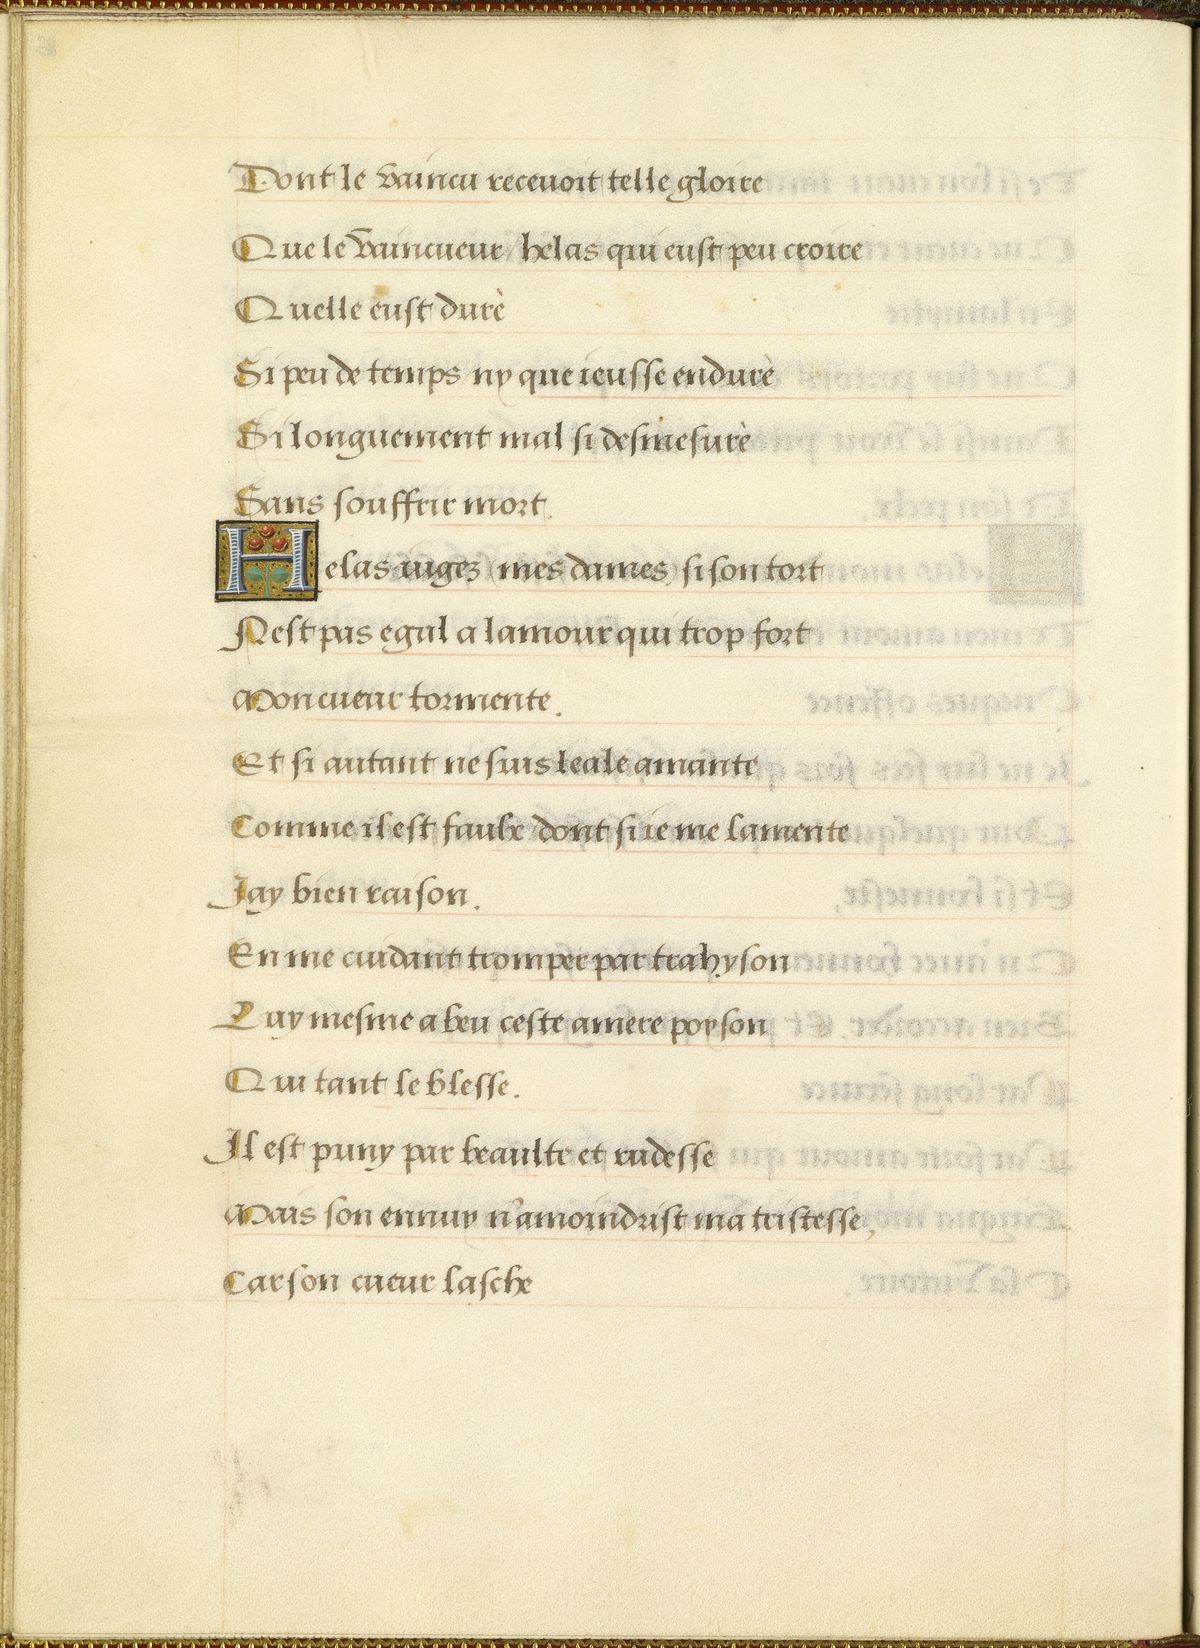 Dont le vaincu recevoit telle gloire
Que le vaincueur helas qui eust peu croire
Quelle eust durè
Si peu de temps ny que ieusse endurè
Si longuement mal si desmesurè
Sans souffrir mort.
Helas iugez mes dames, si son tort
Nest pas egal a lamour qui trop fort
Mon cueur tormente.
Et si autant ne suis leale amante
Comme il est faulx dont si ie me lamente
Jay bien raison.
En me cuidant tromper par trahyson
Luy mesme a beu ceste amere poyson
Qui tant le blesse.
Il est puny par beaulte et rudesse
Mais son ennuy n'amoindrist ma tristesse,
Car son cueur lasche